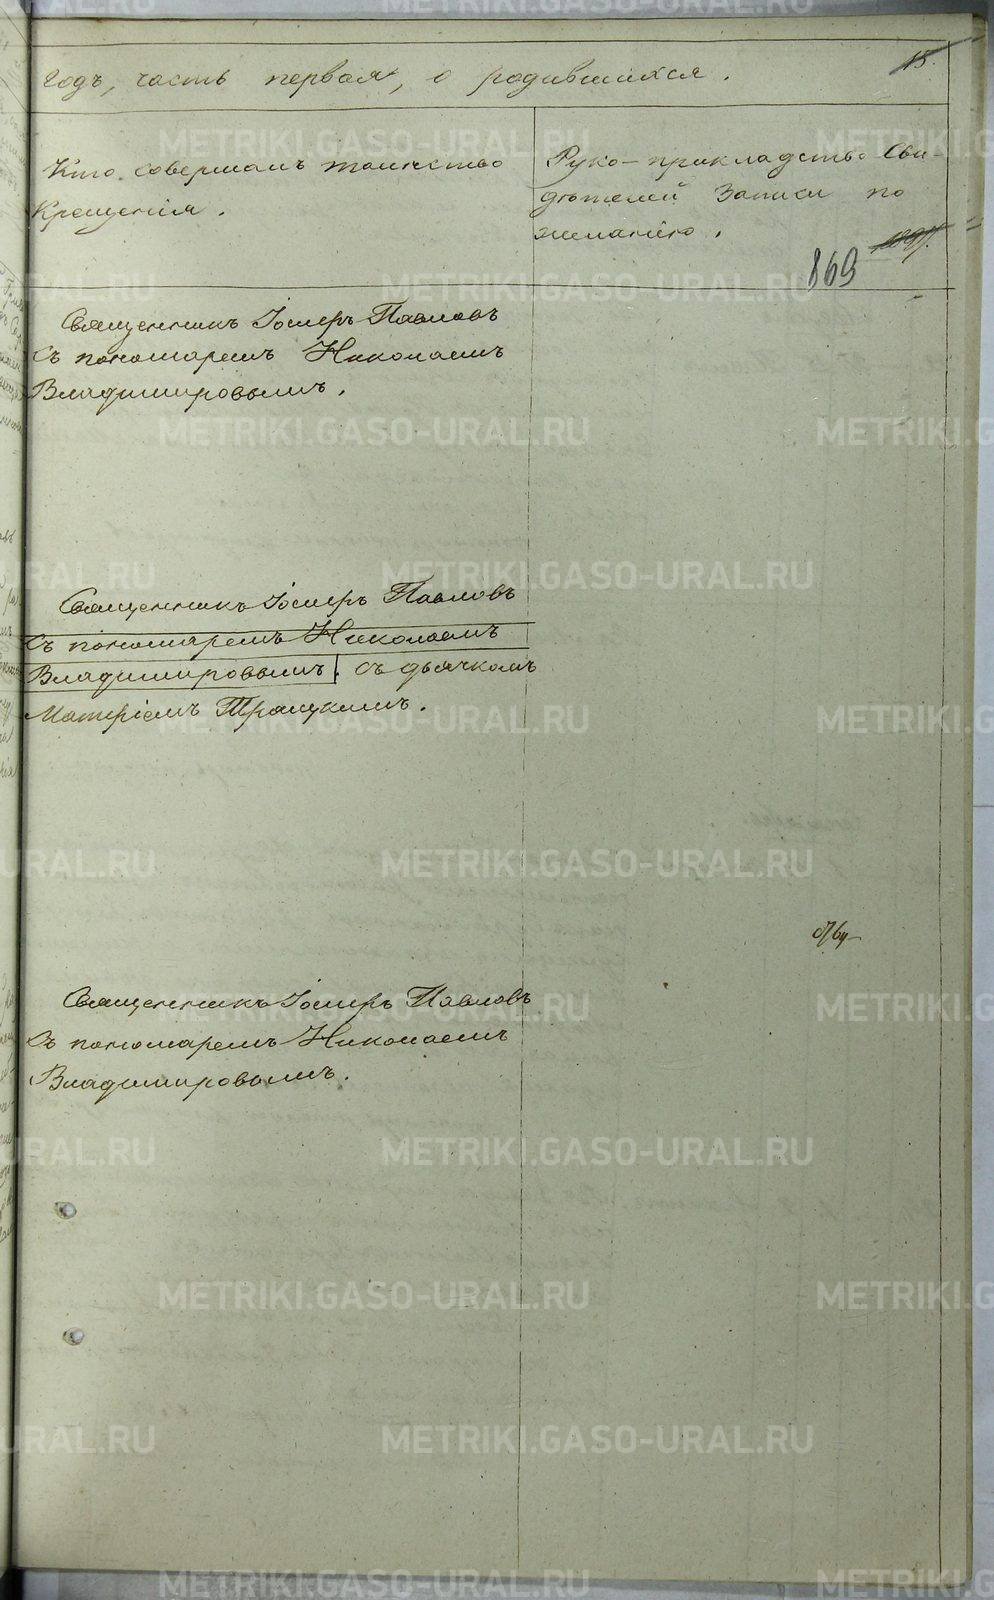 годъ, часть первая, о родившихся.
15.
Кто совершалъ таинство
Крещенія.
Руко-прикладство Сви-
дѣтелей Записи по
желанію.
869
Священникъ Іосифъ Павловъ
съ пономаремъ Николаемъ
Владимировымъ.
Священникъ Іосифъ Павловъ
съ пономаремъ Николаемъ
Владимировымъ. съ дьячкомъ
Священникъ Іосифъ Павловъ
съ пономаремъ Николаемъ
Владимировымъ.
METRIKI.GASO-URAL.RU